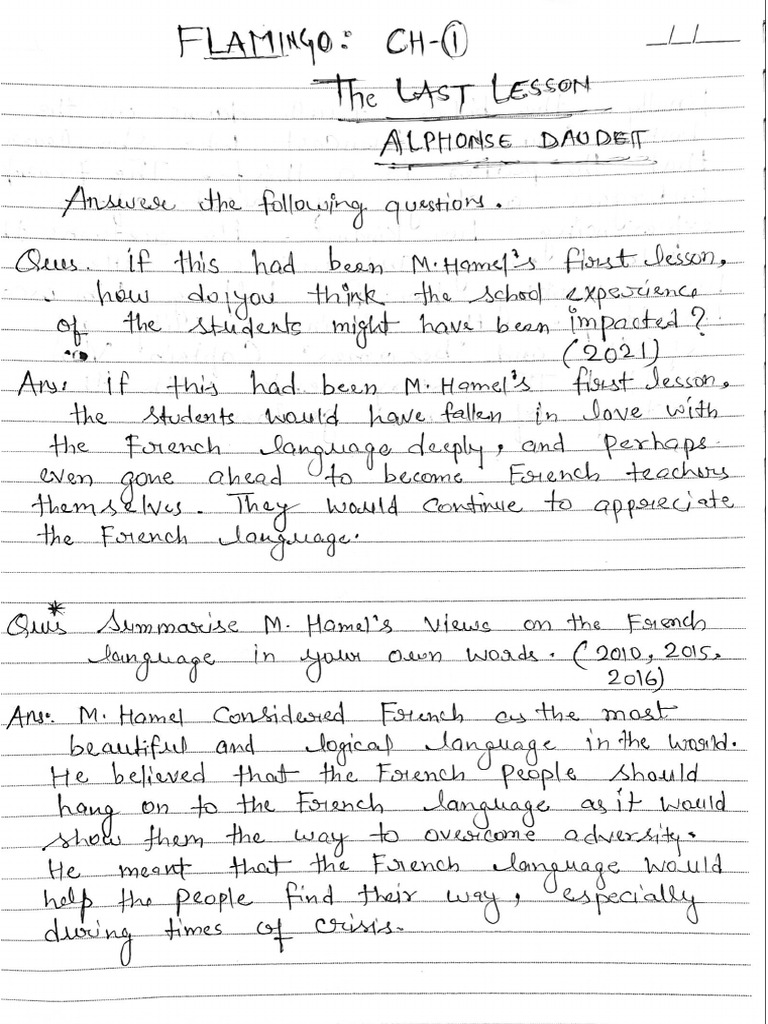 FLAMINGO: CH-①
The LAST LESSON
ALPHONSE DAUDET
Answer the following questions.
Ques. if this had been M.Hamel's first lesson,
how do you think the school experience
of the students might have been impacted?
(2021)
Ans: if this had been M.Hamel's first lesson,
the students would have fallen in love with
the French language deeply, and perhaps
even gone ahead to become French teachers
themselves. They would continue to appreciate
the French language.
*
Ques Summarise M. Hamel's views on the French
language in your own words. (2010, 2015,
2016)
Ans: M. Hamel Considered French as the most
beautiful and logical language in the world.
He believed that the French people should
hang on to the French language as it would
show them the way to overcome adversity.
He meant that the French language would
help the people find their way, especially
during times of crisis.